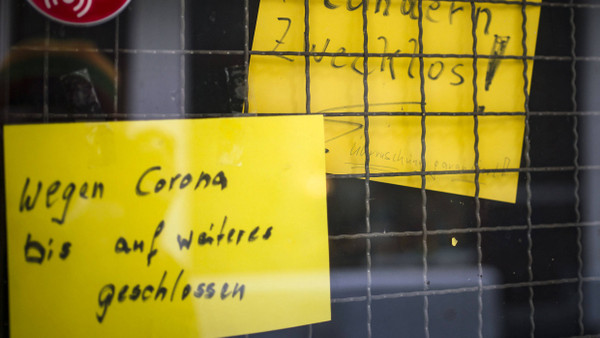 Plündern
Zwecklos!
Wegen Corona
bis auf weiteres
geschlossen